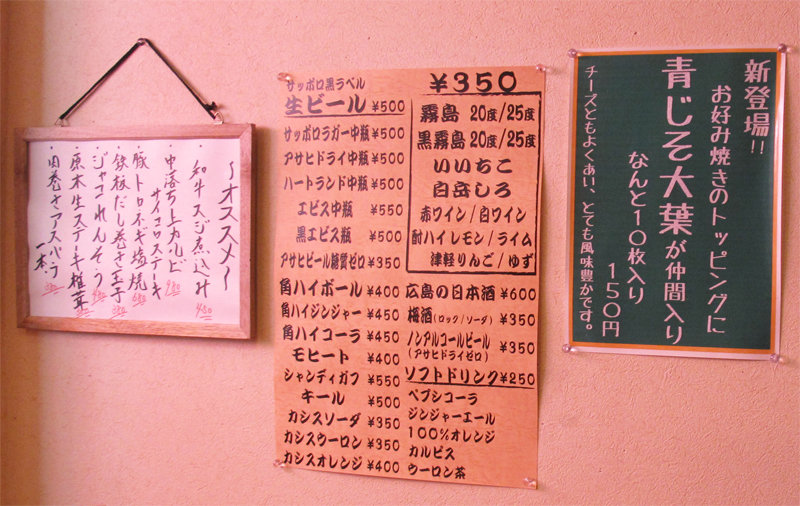 ～オススメ～
・和牛スジ煮込み 480
・中落ち上カルビ
サイコロステーキ 980
・豚トロネギ塩焼 680
・鉄板だし巻き玉子
・ジャコれんそう
・原木生ステーキ椎茸
・肉巻きアスパラ
一本
サッポロ黒ラベル
生ビール ¥500
サッポロラガー中瓶 ¥500
アサヒドライ中瓶 ¥500
ハートランド中瓶 ¥500
エビス中瓶 ¥550
黒エビス瓶 ¥500
アサヒビール糖質ゼロ ¥350
角ハイボール ¥400
角ハイジンジャー ¥450
角ハイコーラ ¥450
モヒート ¥400
シャンディガフ ¥550
キール ¥500
カシスソーダ ¥350
カシスウーロン ¥350
カシスオレンジ ¥400
¥350
霧島 20度/25度
黒霧島 20度/25度
いいちこ
白岳しろ
赤ワイン/白ワイン
酎ハイレモン/ライム
津軽りんご/ゆず
広島の日本酒 ¥600
梅酒(ロック/ソーダ) ¥350
ノンアルコールビール
(アサヒドライゼロ) ¥350
ソフトドリンク ¥250
ペプシコーラ
ジンジャーエール
100%オレンジ
カルピス
ウーロン茶
新登場!!
お好み焼きのトッピングに
青じそ大葉が仲間入り
なんと10枚入り
150円
チーズともよくあい、とても風味豊かです。